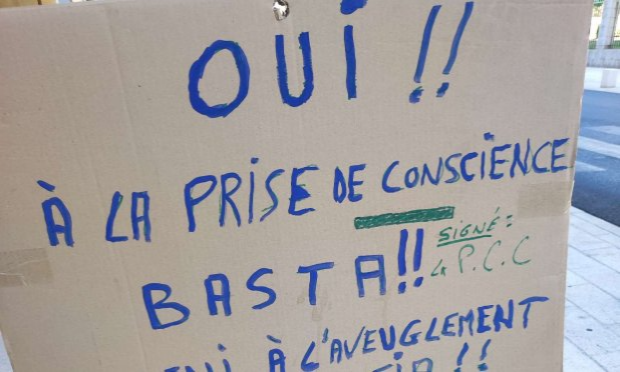 OUI !!
À LA PRISE DE CONSCIENCE
BASTA!!
SIGNÉ:
P.C.C
À L'AVEUGLEMENT
!!